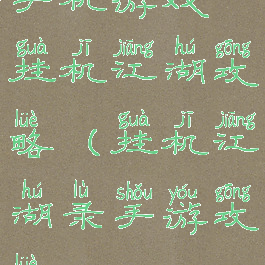 手机游戏
guà jī jiāng hú gōng
挂机江湖攻
lüè guà jī jiāng
略(挂机江
hú lù shǒu yóu gōng
湖录手游攻
lüè